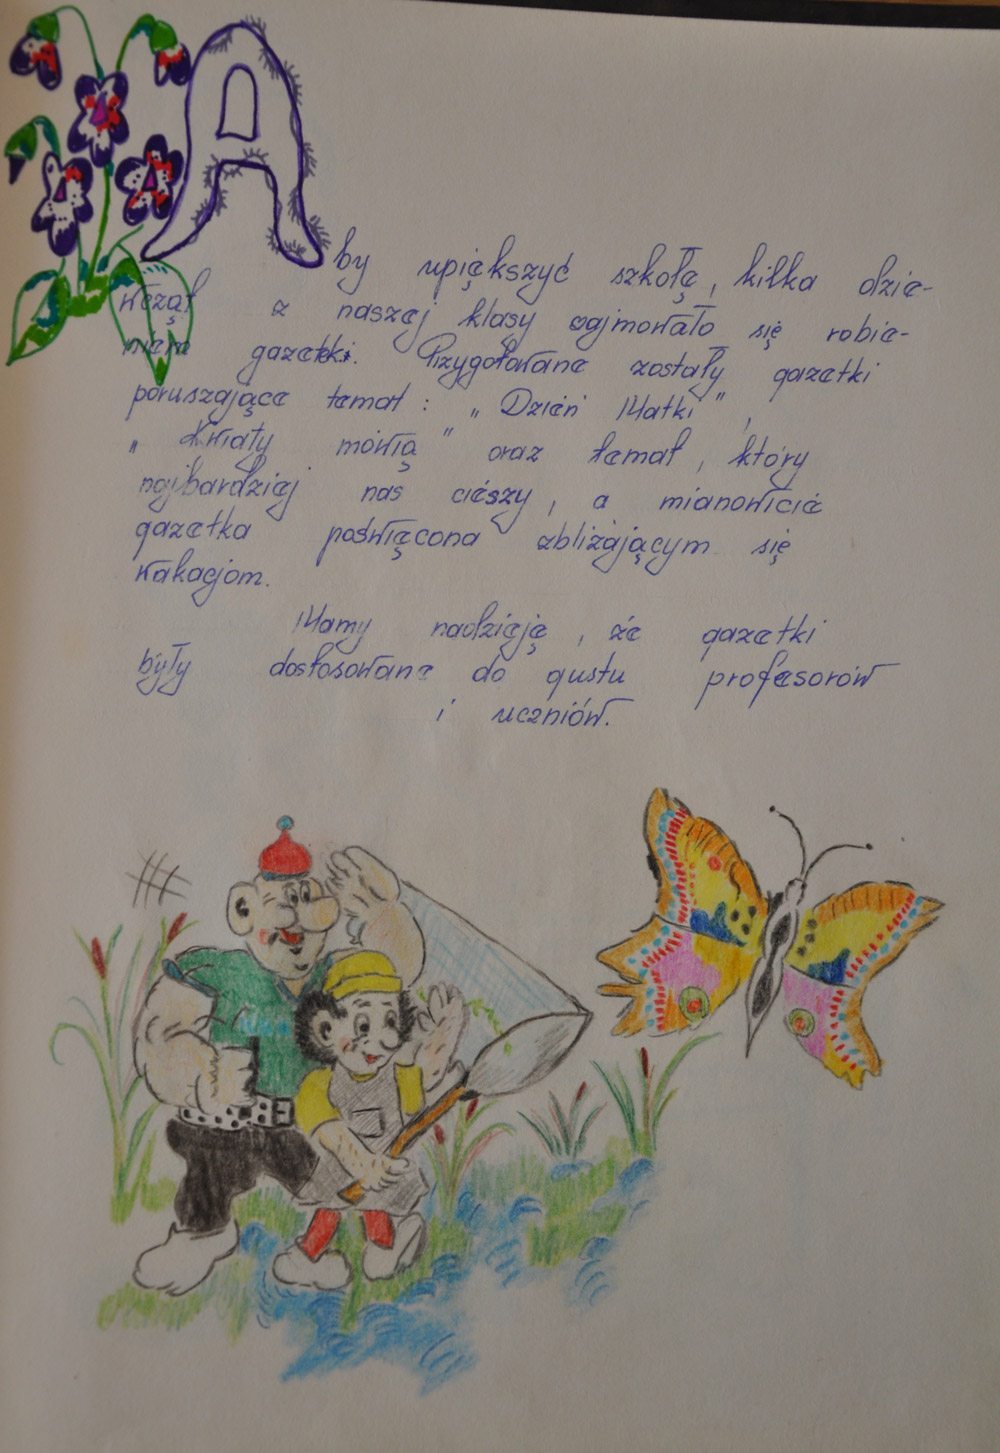 Aby upiększyć szkołę, kilka dzie-
wcząt z naszej klasy zajmowało się robie-
niem gazetki. Przygotowane zostały gazetki
poruszające temat: „Dzień Matki",
„Kwiaty mówią" oraz temat, który
najbardziej nas cieszy, a mianowicie
gazetka poświęcona zbliżającym się
wakacjom.
Mamy nadzieję, że gazetki
były dostosowane do gustu profesorów
i uczniów.